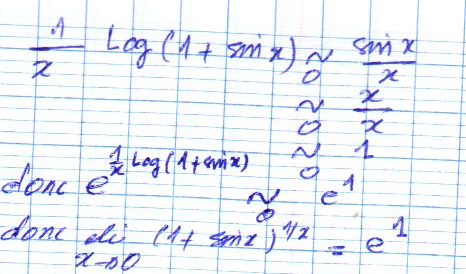 1/x Log(1 + sin x) ~₀ sin x / x
~₀ x/x
~₀ 1
donc e^(1/x Log(1+sin x)) ~₀ e^1
donc li (1 + sin x)^(1/x) = e^1
x→0